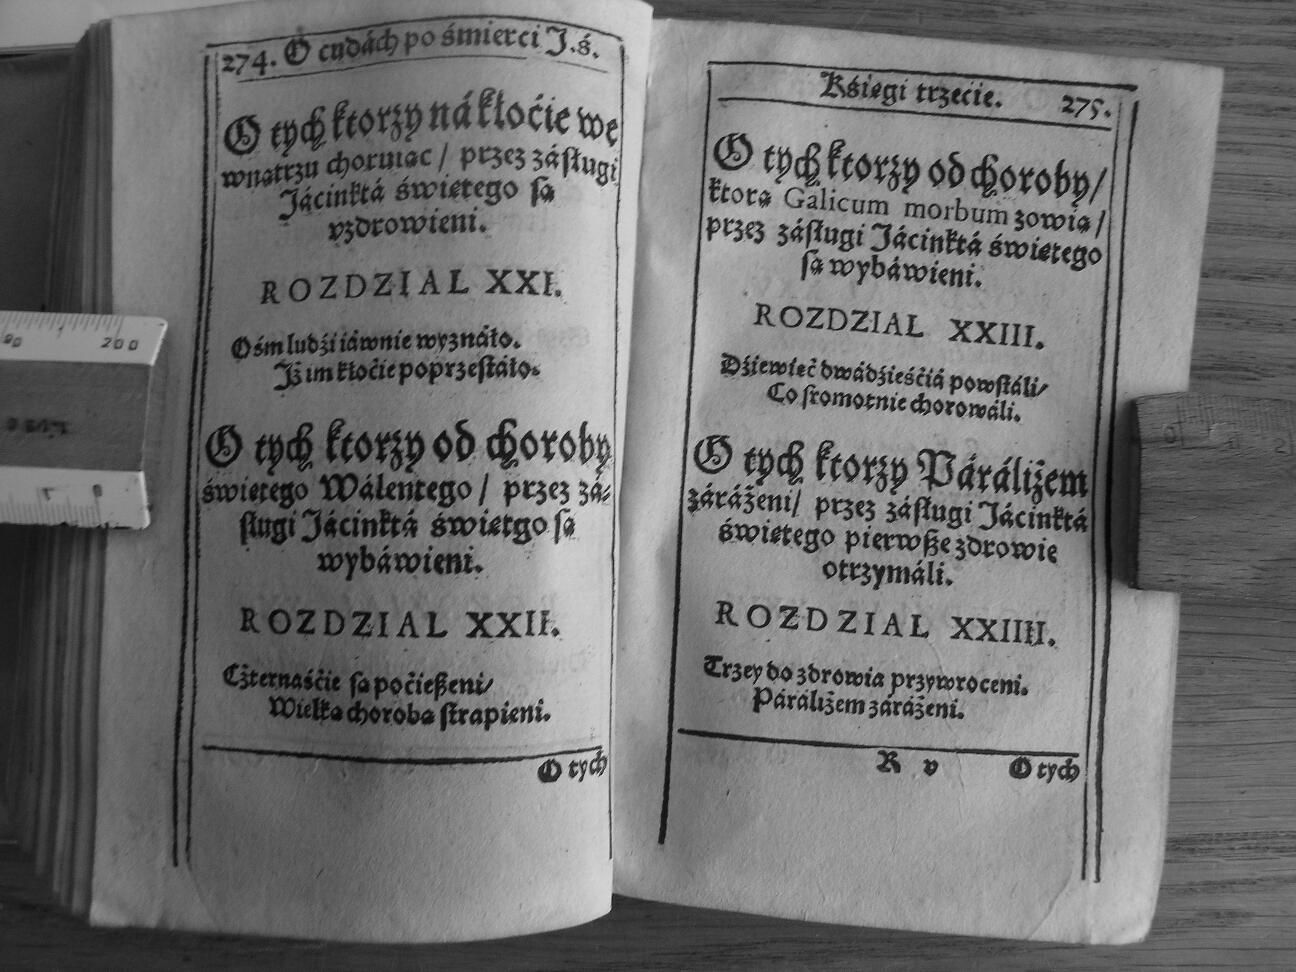 274. O cudách po śmierci J. ś.
O tych ktorzy ná kłoćie we
wnątrzu choruiąc / przez zásługi
Jácinktá świętego są
vzdrowieni.
ROZDZIAL XXI.
Ośm ludźi iáwnie wyznáło.
Jż im kłoćie poprzestáło.
O tych ktorzy od choroby
świętego Wálentego / przez zá-
sługi Jácinktá świętgo są
wybáwieni.
ROZDZIAL XXII.
Cżternaśćie są poćießeni/
Wielką chorobą strapieni.
O tych
Kśięgi trzećie. 275.
O tych ktorzy od choroby/
ktorą Galicum morbum zowią /
przez zásługi Jácinktá świętego
są wybáwieni.
ROZDZIAL XXIII.
Dźiewięć dwádźieśćiá powstáli/
Co sromotnie chorowáli.
O tych ktorzy Páráliżem
záráżeni/ przez zásługi Jácinktá
świętego pierwße zdrowie
otrzymáli.
ROZDZIAL XXIIII.
Trzey do zdrowia przywroceni.
Páráliżem záráżeni.
R v O tych
200
0